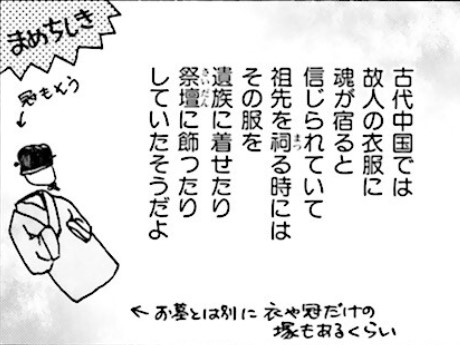 まめちしき
冠もそう
古代中国では
故人の衣服に
魂が宿ると
信じられていて
祖先を祠る時には
その服を
遺族に着せたり
祭壇に飾ったり
していたそうだよ
←お墓とは別に衣や冠だけの
塚もあるくらい